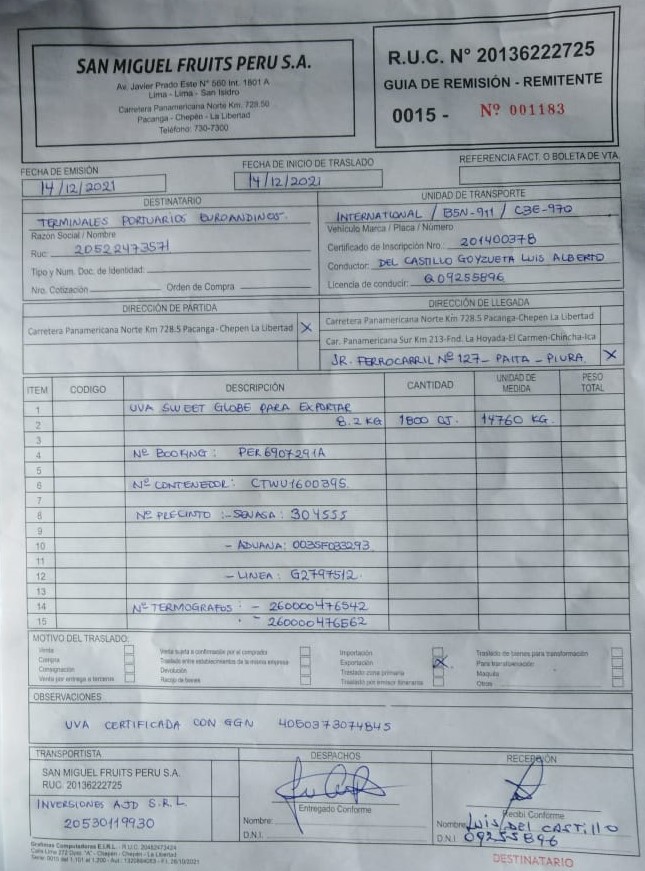 SAN MIGUEL FRUITS PERU S.A.
Av. Javier Prado Este N° 560 Int. 1601 A
Lima - Lima - San Isidro
Carretera Panamericana Norte Km. 728.50
Pacanga - Chepén - La Libertad
Teléfono: 730-7300
R.U.C. N° 20136222725
GUIA DE REMISIÓN - REMITENTE
0015 - Nº 001183
FECHA DE EMISIÓN
14/12/2021
FECHA DE INICIO DE TRASLADO
14/12/2021
REFERENCIA FACT. O BOLETA DE VTA.
DESTINATARIO
TERMINALES PORTUARIOS EUROANDINOS.
Razón Social / Nombre
Ruc: 20522473571
Tipo y Num. Doc. de Identidad:
Nro. Cotización Orden de Compra
UNIDAD DE TRANSPORTE
INTERNATIONAL / B5N-911 / C3E-970
Vehículo Marca / Placa / Número
Certificado de Inscripción Nro 201400378
Conductor: DEL CASTILLO GOYZUETA LUIS ALBERTO
Licencia de conducir: Q09255896
DIRECCIÓN DE PARTIDA
Carretera Panamericana Norte Km 728.5 Pacanga-Chepen La Libertad X
DIRECCIÓN DE LLEGADA
Carretera Panamericana Norte Km 728.5 Pacanga-Chepen La Libertad
Car. Panamericana Sur Km 213-Fnd. La Hoyada-El Carmen-Chincha-Ica
JR. FERROCARRIL Nº 127 - PAITA - PIURA. X
ITEM CODIGO DESCRIPCIÓN CANTIDAD UNIDAD DE MEDIDA PESO TOTAL
1 UVA SWEET GLOBE PARA EXPORTAR
2 8.2 KG 1800 CJ. 14760 KG.
3
4 Nº BOOKING: PER6907291A
5
6 Nº CONTENEDOR: CTWU1600395.
7
8 Nº PRECINTO :- SENASA: 304555
9
10 - ADUANA: 0035F033293
11
12 - LINEA: G2797512.
13
14 Nº TERMOGRAFOS: - 260000476542
15 - 260000476562
MOTIVO DEL TRASLADO:
Venta
Compra
Consignación
Venta por entrega a terceros
Venta sujeta a confirmación por el comprador
Traslado entre establecimientos de la misma empresa
Devolución
Recojo de bienes
Importación
Exportación X
Traslado zona primaria
Traslado por emisor itinerante
Traslado de bienes para transformación
Para transformación:
Maquila
Otros
OBSERVACIONES
UVA CERTIFICADA CON GGN 4050373074845
TRANSPORTISTA
SAN MIGUEL FRUITS PERU S.A.
RUC. 20136222725
INVERSIONES AJD S.R.L.
20530119930
DESPACHOS
Entregado Conforme
Nombre:
D.N.I.
RECEPCIÓN
Recibi Conforme
Nombre: LUIS DEL CASTILLO
D.N.I. 09255896
DESTINATARIO